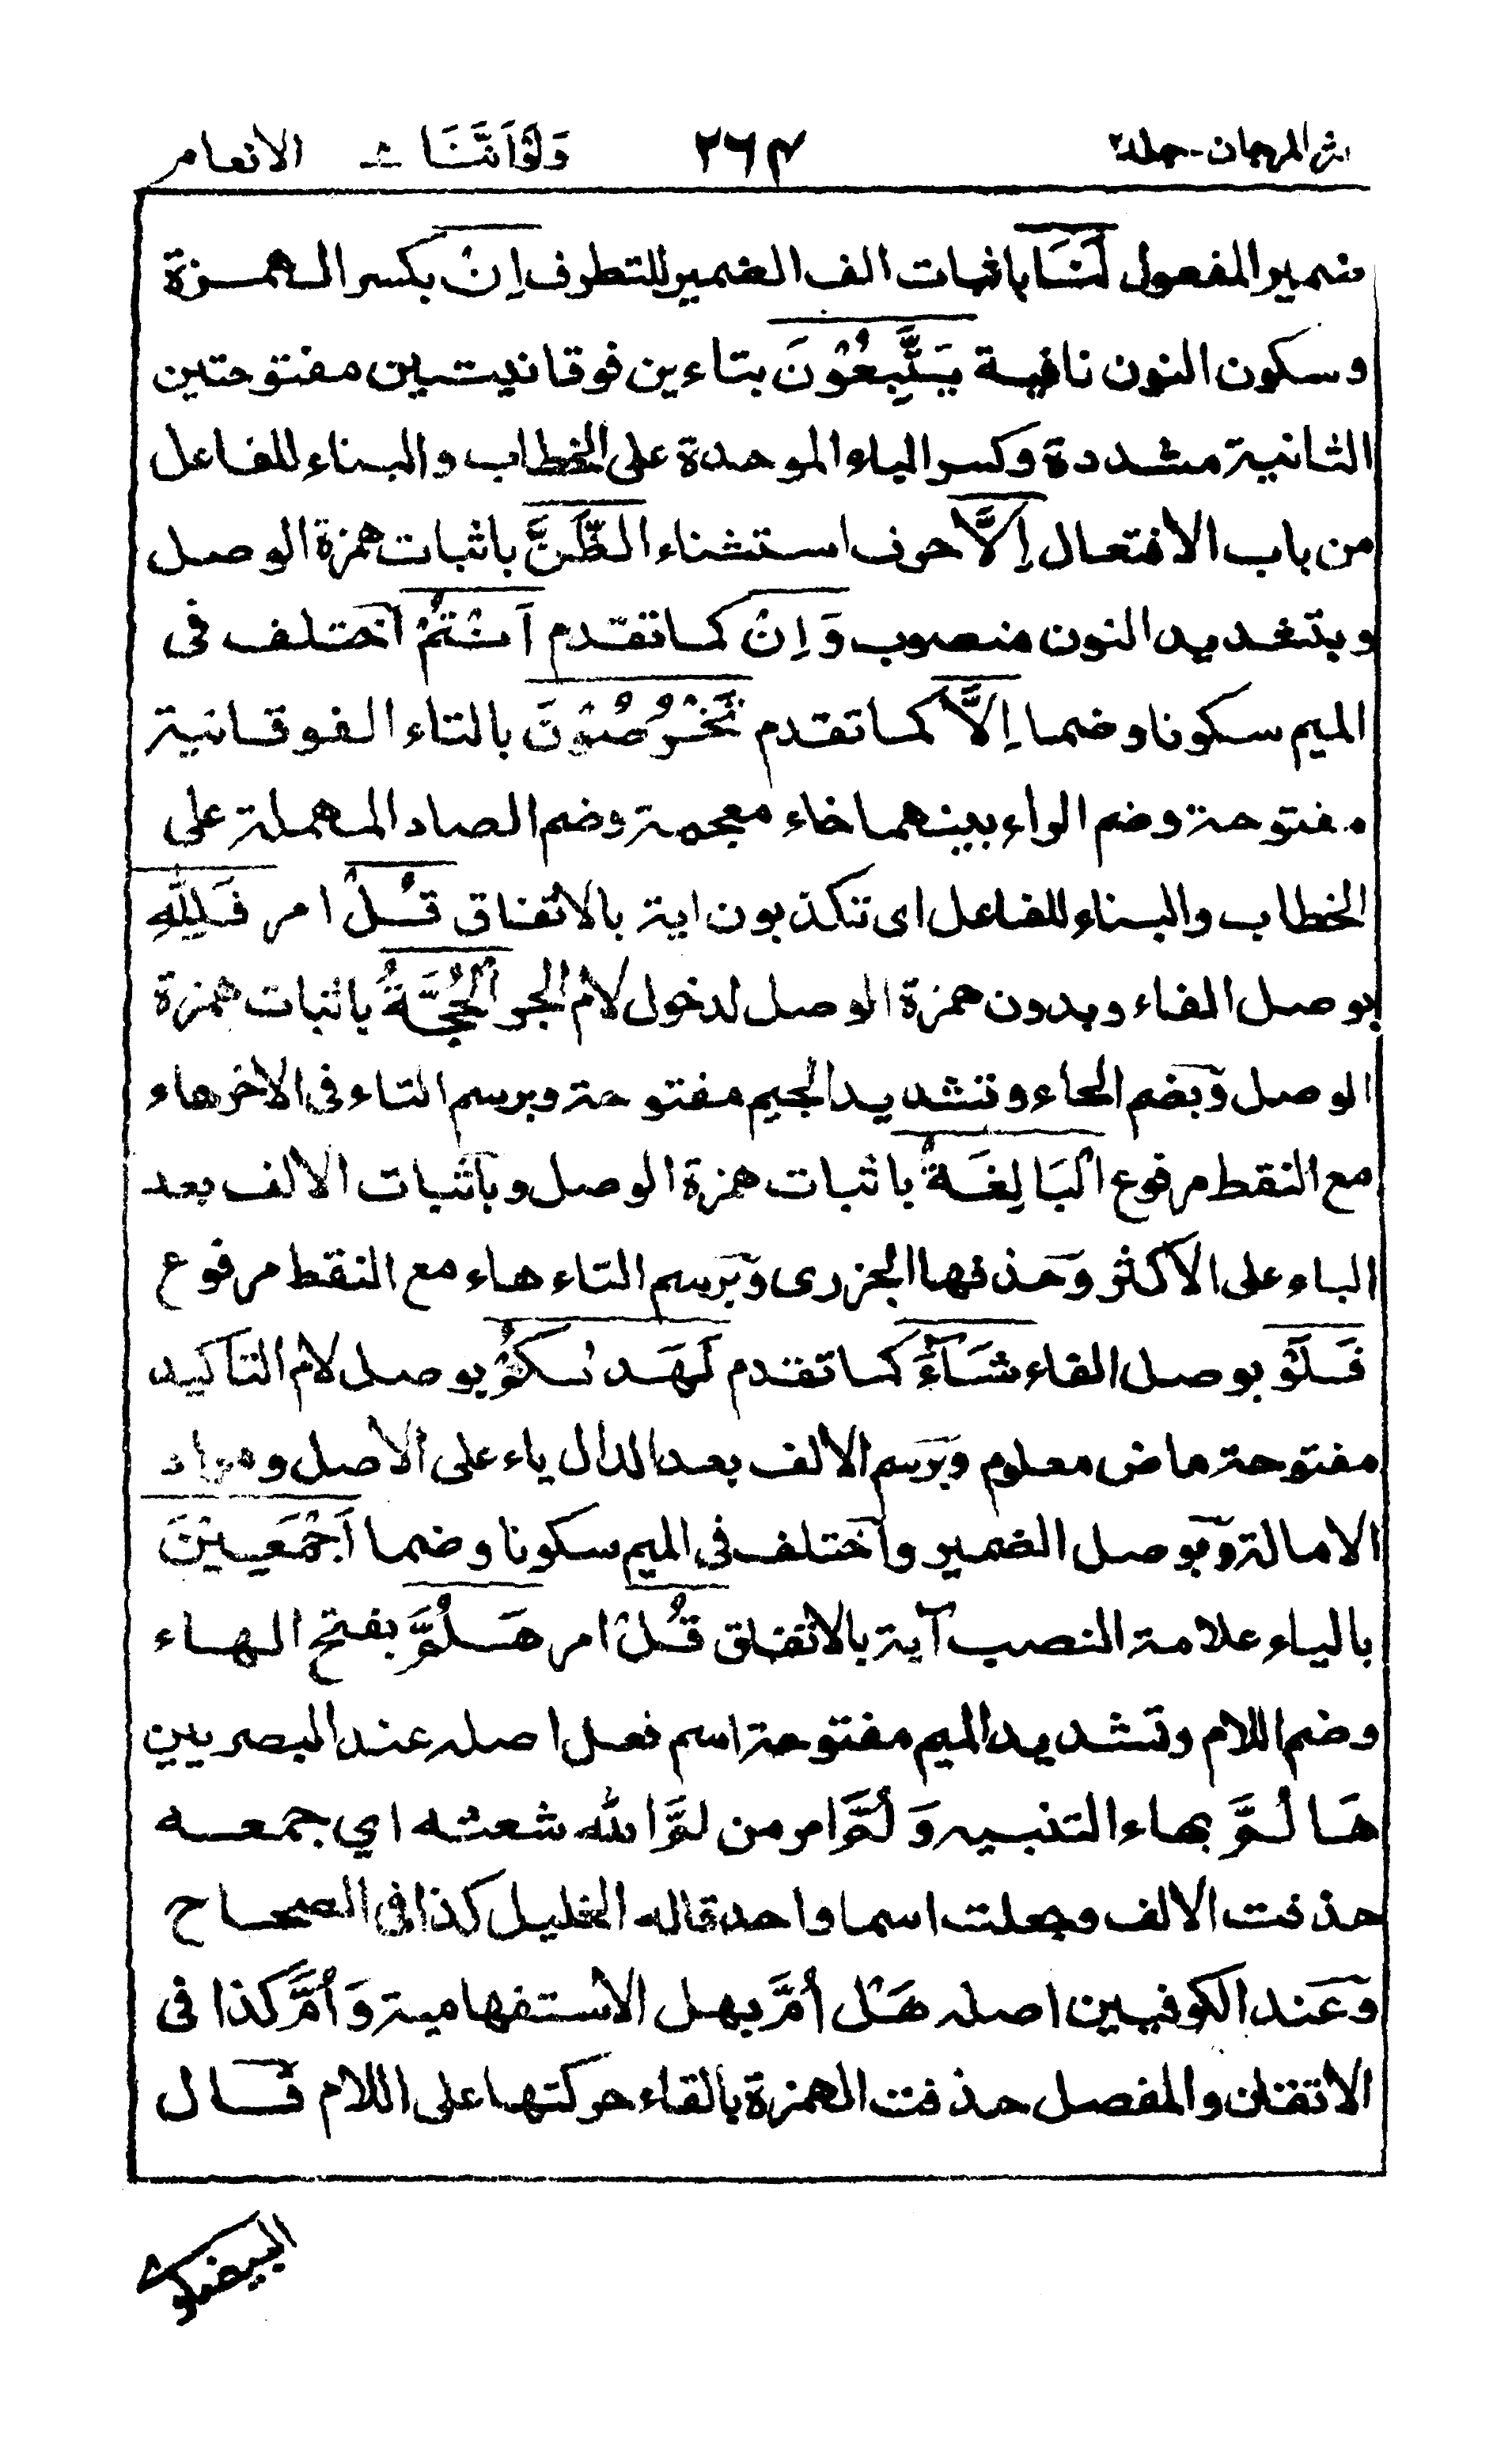 نثر المرجان-جلد٢ ٢٦٤ وَلَوْاَنَّنَا ٨ الانعام
ضمير المفعول لَنَا باثبات الف الضمير للتطرف اِنْ بكسر الهمزة
وسكون النون نافية تَتَّبِعُوْنَ بتاءين فوقانيتين مفتوحتين
الثانية مشددة وكسر الباء الموحدة على الخطاب والبناء للفاعل
من باب الافتعال اِلَّا حرف استثناء الظَّنَّ باثبات همزة الوصل
وبتشديد النون منصوب وَاِنْ كما تقدم اَنْتُمْ اختلف فى
الميم سكونا وضما اِلَّا كما تقدم تَخْرُصُوْنَ بالتاء الفوقانية
مفتوحة وضم الراء بينهما خاء معجمة وضم الصاد المهملة على
الخطاب والبناء للفاعل اى تكذبون اية بالاتفاق قُلْ امر فَلِلّٰهِ
بوصل الفاء وبدون همزة الوصل لدخول لام الجر الْحُجَّةُ باثبات همزة
الوصل وبضم الحاء وتشديد الجيم مفتوحة وبرسم التاء فى الاخر هاء
مع النقط مرفوع الْبَالِغَةُ باثبات همزة الوصل وباثبات الالف بعد
الباء على الاكثر وحذفها الجزرى وبرسم التاء هاء مع النقط مرفوع
فَلَوْ بوصل الفاء شَآءَ كما تقدم لَهَدٰىكُمْ بوصل لام التاكيد
مفتوحة ماض معلوم وبرسم الالف بعد الدال ياء على الاصل ومراد
الامالة وبوصل الضمير واختلف فى الميم سكونا وضما اَجْمَعِيْنَ
بالياء علامة النصب آية بالاتفاق قُلْ امر هَلُمَّ بفتح الهاء
وضم اللام وتشديد الميم مفتوحة اسم فعل اصله عند البصريين
هَا لُمَّ بهاء التنبيه وَ لُمَّ امر من لَمَّ الله شعثه اي جمعه
حذفت الالف وجعلت اسما واحد قاله الخليل كذا فى الصحاح
وعند الكوفيين اصله هَلْ اُمَّ بهل الاستفهامية وَ اُمَّ كذا فى
الاتقان والمفصل حذفت الهمزة بالقاء حركتها على اللام قال
البيضاوى